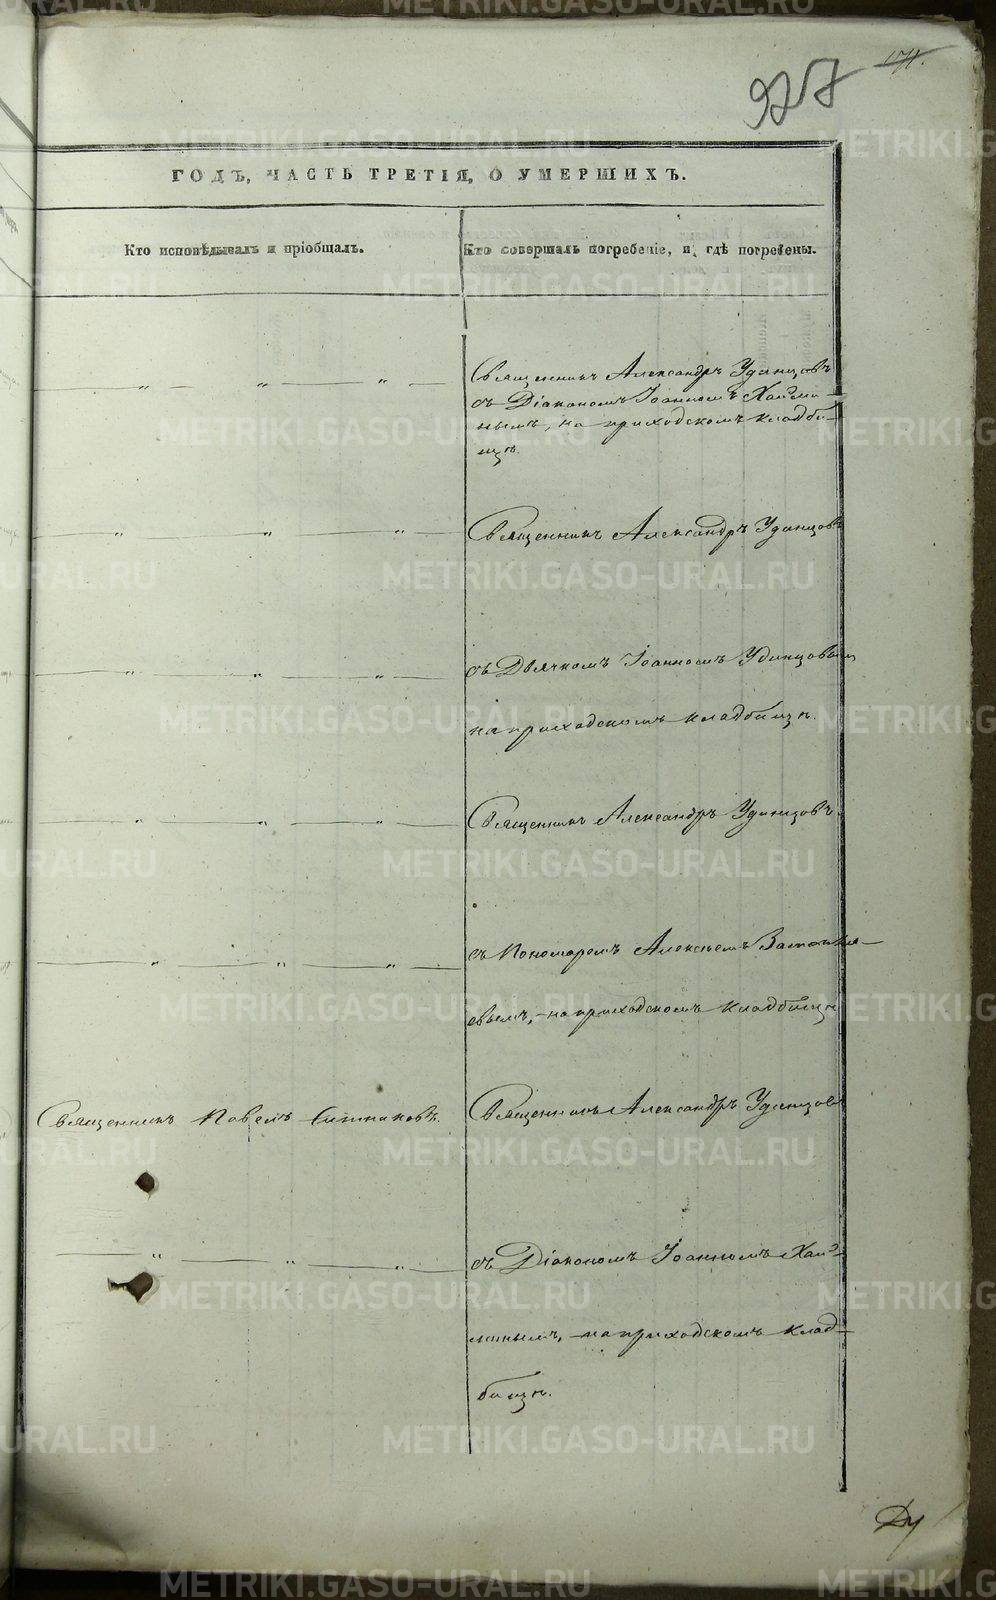 927
171.
ГОДЪ, ЧАСТЬ ТРЕТІЯ, О УМЕРШИХЪ.
Кто исповѣдывалъ и пріобщалъ.
Кто совершалъ погребеніе, и гдѣ погребены.
Священникъ Александръ Удинцовъ
съ Діакономъ Іоанномъ Хай
нымъ, на приходскомъ кладби-
щѣ.
Священникъ Александръ Удинцовъ
съ Дьячкомъ Іоанномъ Удинцовымъ
на приходскомъ кладбищѣ.
Священникъ Александръ Удинцовъ.
съ Пономаремъ Алексѣемъ
евымъ, на приходскомъ кладбищѣ
Священникъ Павелъ
Священникъ Александръ Удинцовъ
съ Діакономъ Іоанномъ Хай-
минымъ, на приходскомъ клад-
бищѣ.
METRIKI.GASO-URAL.RU